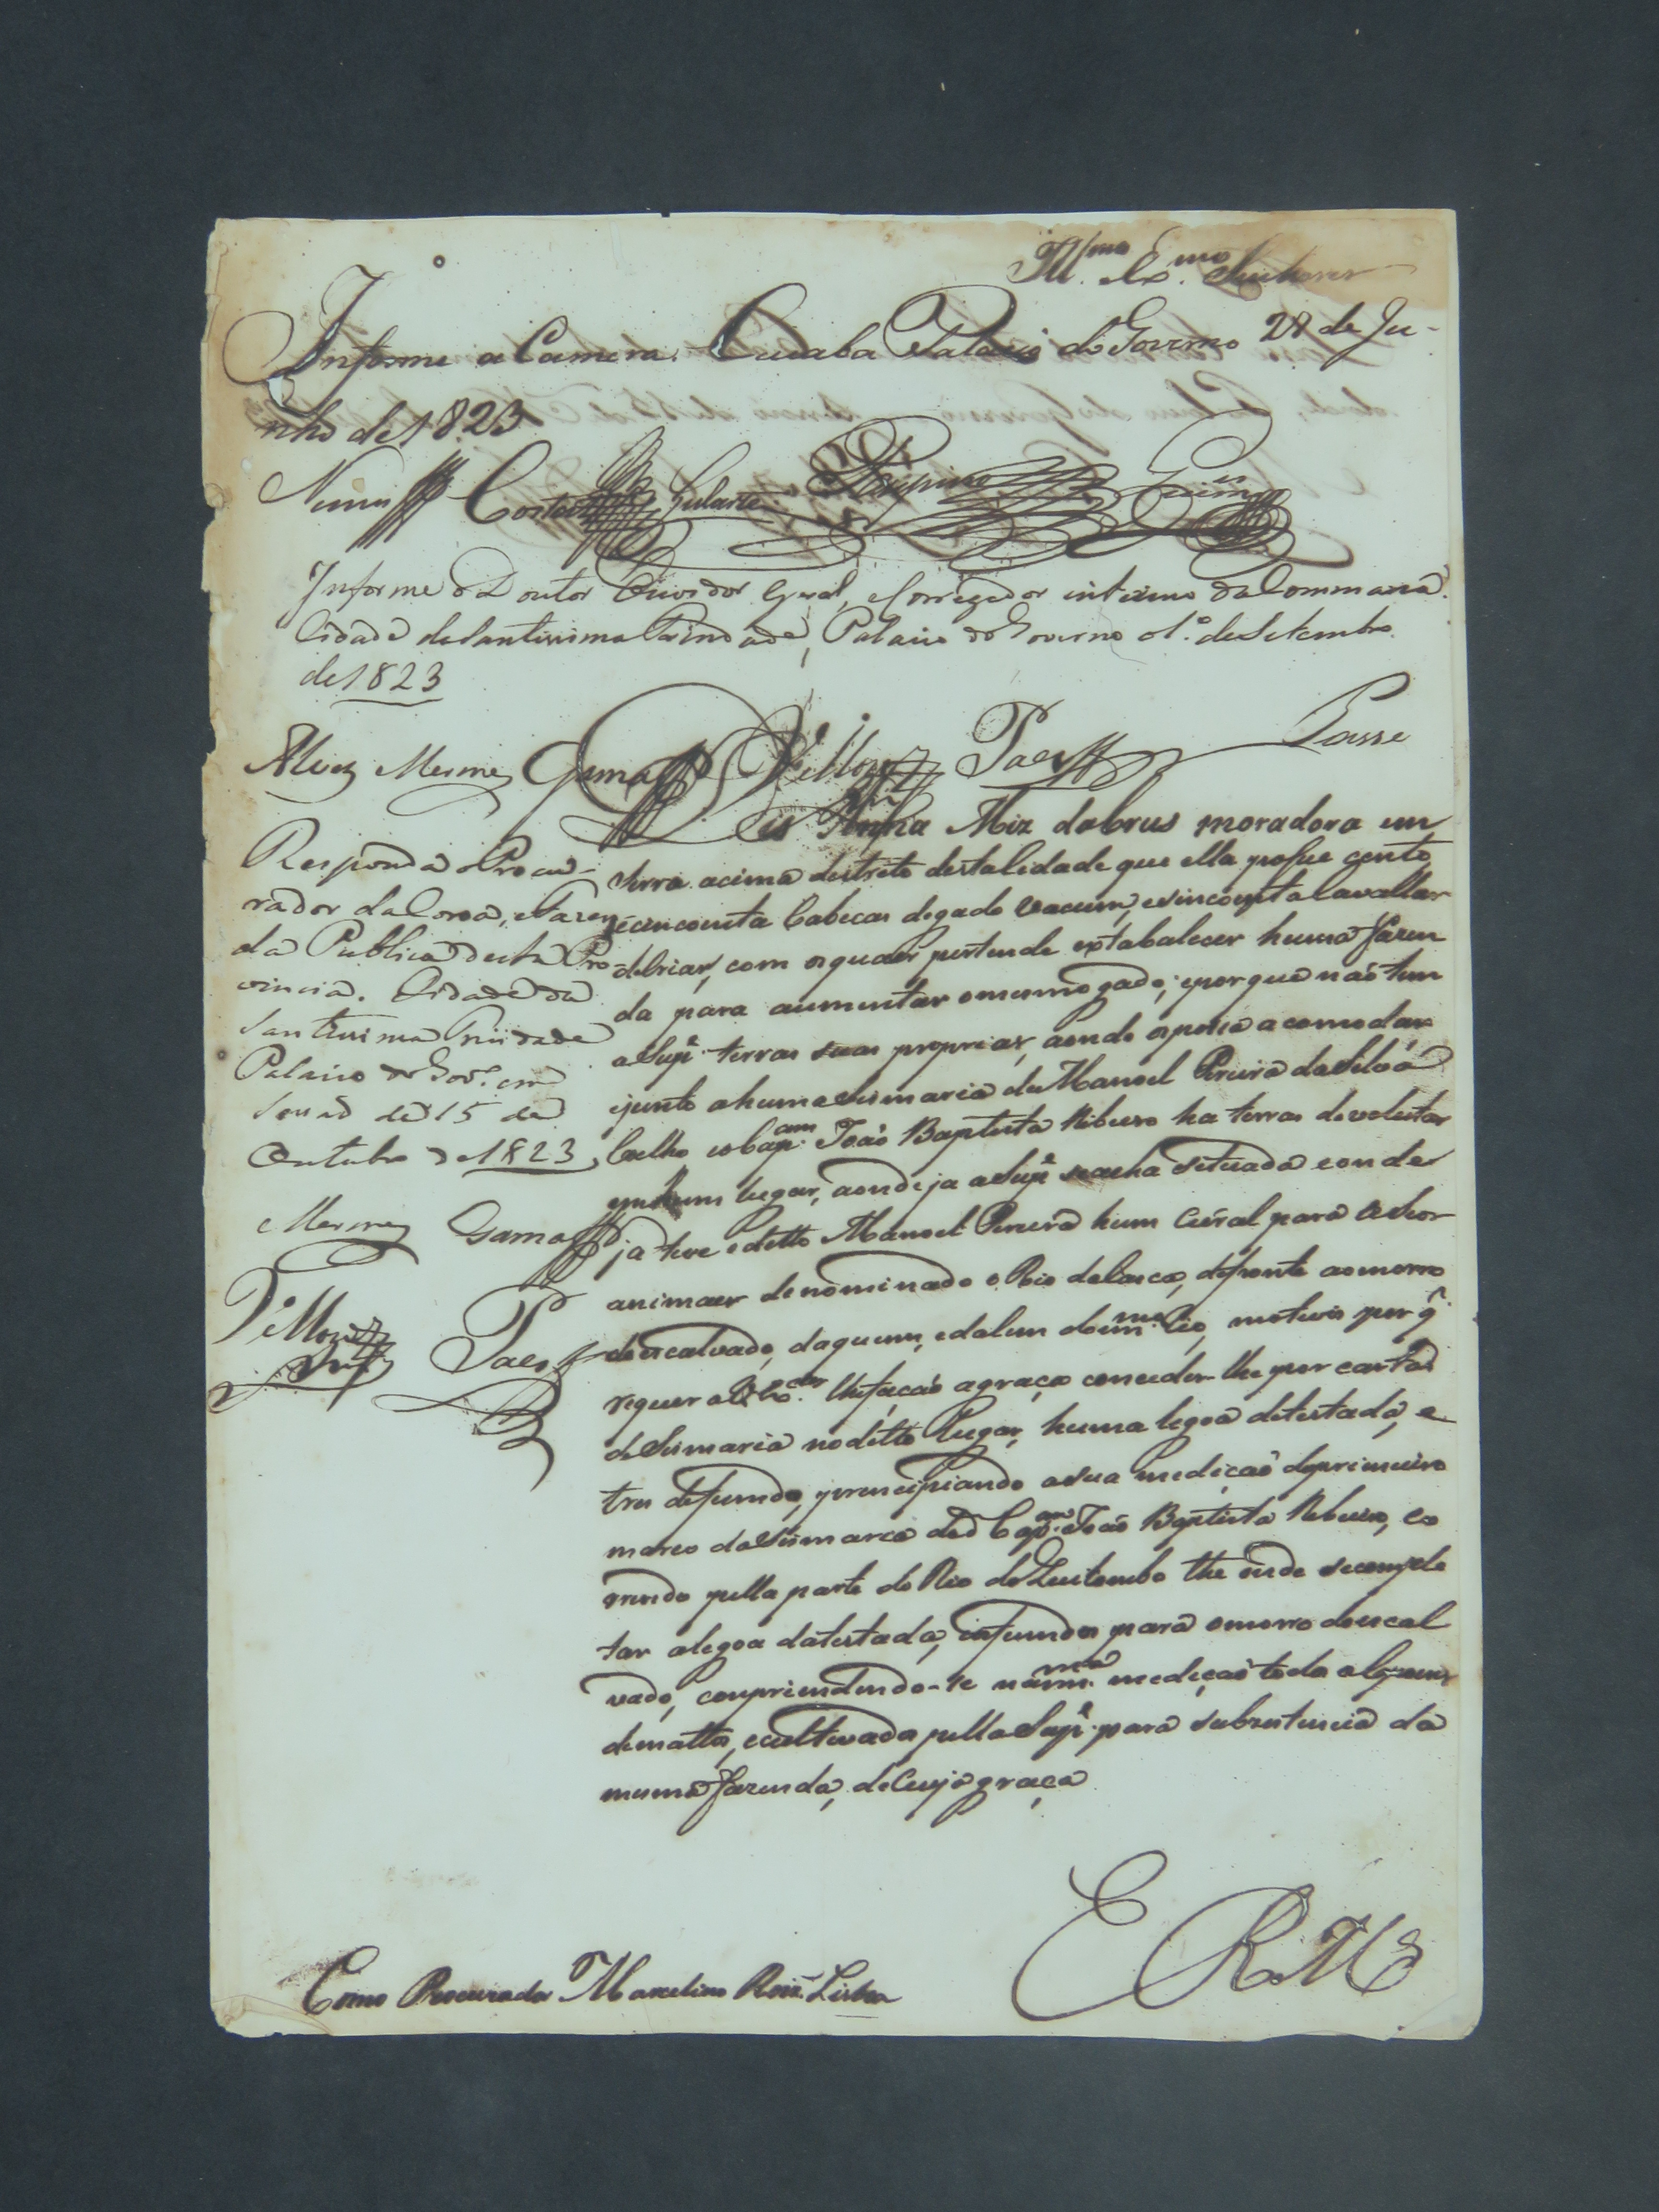 Ill.mo Ex.mo Senhores
Informe a Camera. Cuiaba Palacio do Governo 28 de Ju-
nho de 1823
Nunes Costa Gularte
Informe o Doutor Ouvidor Geral, e Corregedor interino da Commarca.
Cidade da Santissima Trindade, Palacio do Governo o 1.º de Setembro
de 1823
Alves Mermes Gama Vellozo Paes
Passe
Responda o Procu-
rador da Coroa, e Fazen
da Publica desta Pro-
vincia. Cidade da
Santissima Trindade
Palacio do Gov.º em
de 15 de
Outubro de 1823
Mermes Gama
Vellozo Paes
Diz Anna Miz da Crus moradora em
serra acima destrito desta Cidade que ella possue cento
ecincoenta Cabecas de gado vacum, e sincoenta Cavallar
de Criar, com os quaes pertende extabalecer huma fazen
da para aumentar o mesmo gado; eporque não tem
a Sup.e terras suas proprias, aonde os possa acomodar,
ejunto a huma sismaria de Manoel Pereira da Silva
Coelho e o Cap.am João Baptista Ribeiro ha terras devolutas
em hum lugar, aonde ja a Sup.e se acha situada e onde
ja teve o ditto Manoel Pereira hum Cural para os seos
animaes denominado o Rio da Casca, defronte ao morro
do escalvado, daquem, edalem do m.mo Rio, motivos por q̃
requer a V. Ex.cias lhe fação a graça conceder-lhe por carta
de Sismaria no ditto lugar, huma legoa de testada, e
tres de fundo, principiando a sua medição do primeiro
marco da Sismaria do d.º Cap.am João Baptista Ribeiro, co
rrendo pella parte do Rio do Quilombo the onde se comple
tar a legoa da testada, e os fundos para o morro do escal
vado, comprendendo-se na m.ma medição todos alguns
de matto, e cultivado pella Sup.e para subzistencia da
mesma fazenda, de Cuja graça
E R M.ce
Como Procurador Marcelino Roiz Lisboa